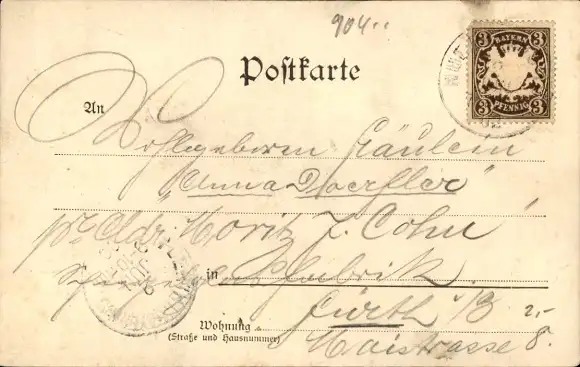 904..
3 BAYERN 3
3 PFENNIG 3
Postkarte
An Wohlgeboren Fräulein
"Anna Doerfler"
pr. Adr. Moritz J. Cohn
in
Fürth i/B.
Wohnung
(Straße und Hausnummer)
Maistrasse 8.
2,-